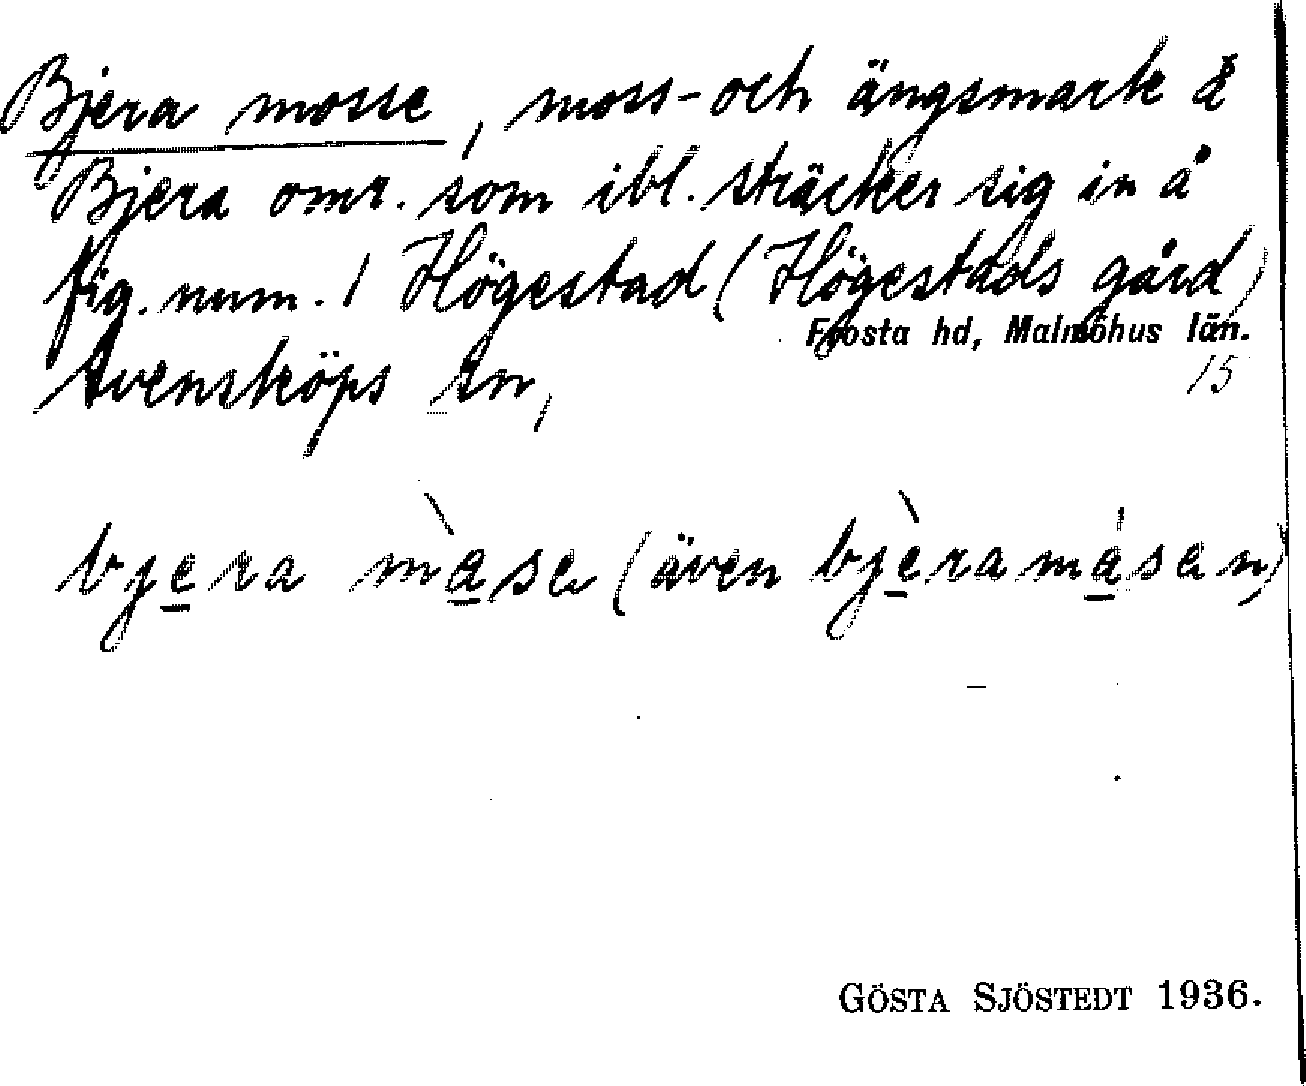 Bjera mosse, moss- och ängsmark å
Bjera omr. som ibl. sträcker sig in å
fig. num. 1 Högestad (Högestads gård)
Frosta hd, Malmöhus län.
Svensköps sn, 15
bjera màse (även bjèramásen)
GÖSTA SJÖSTEDT 1936.